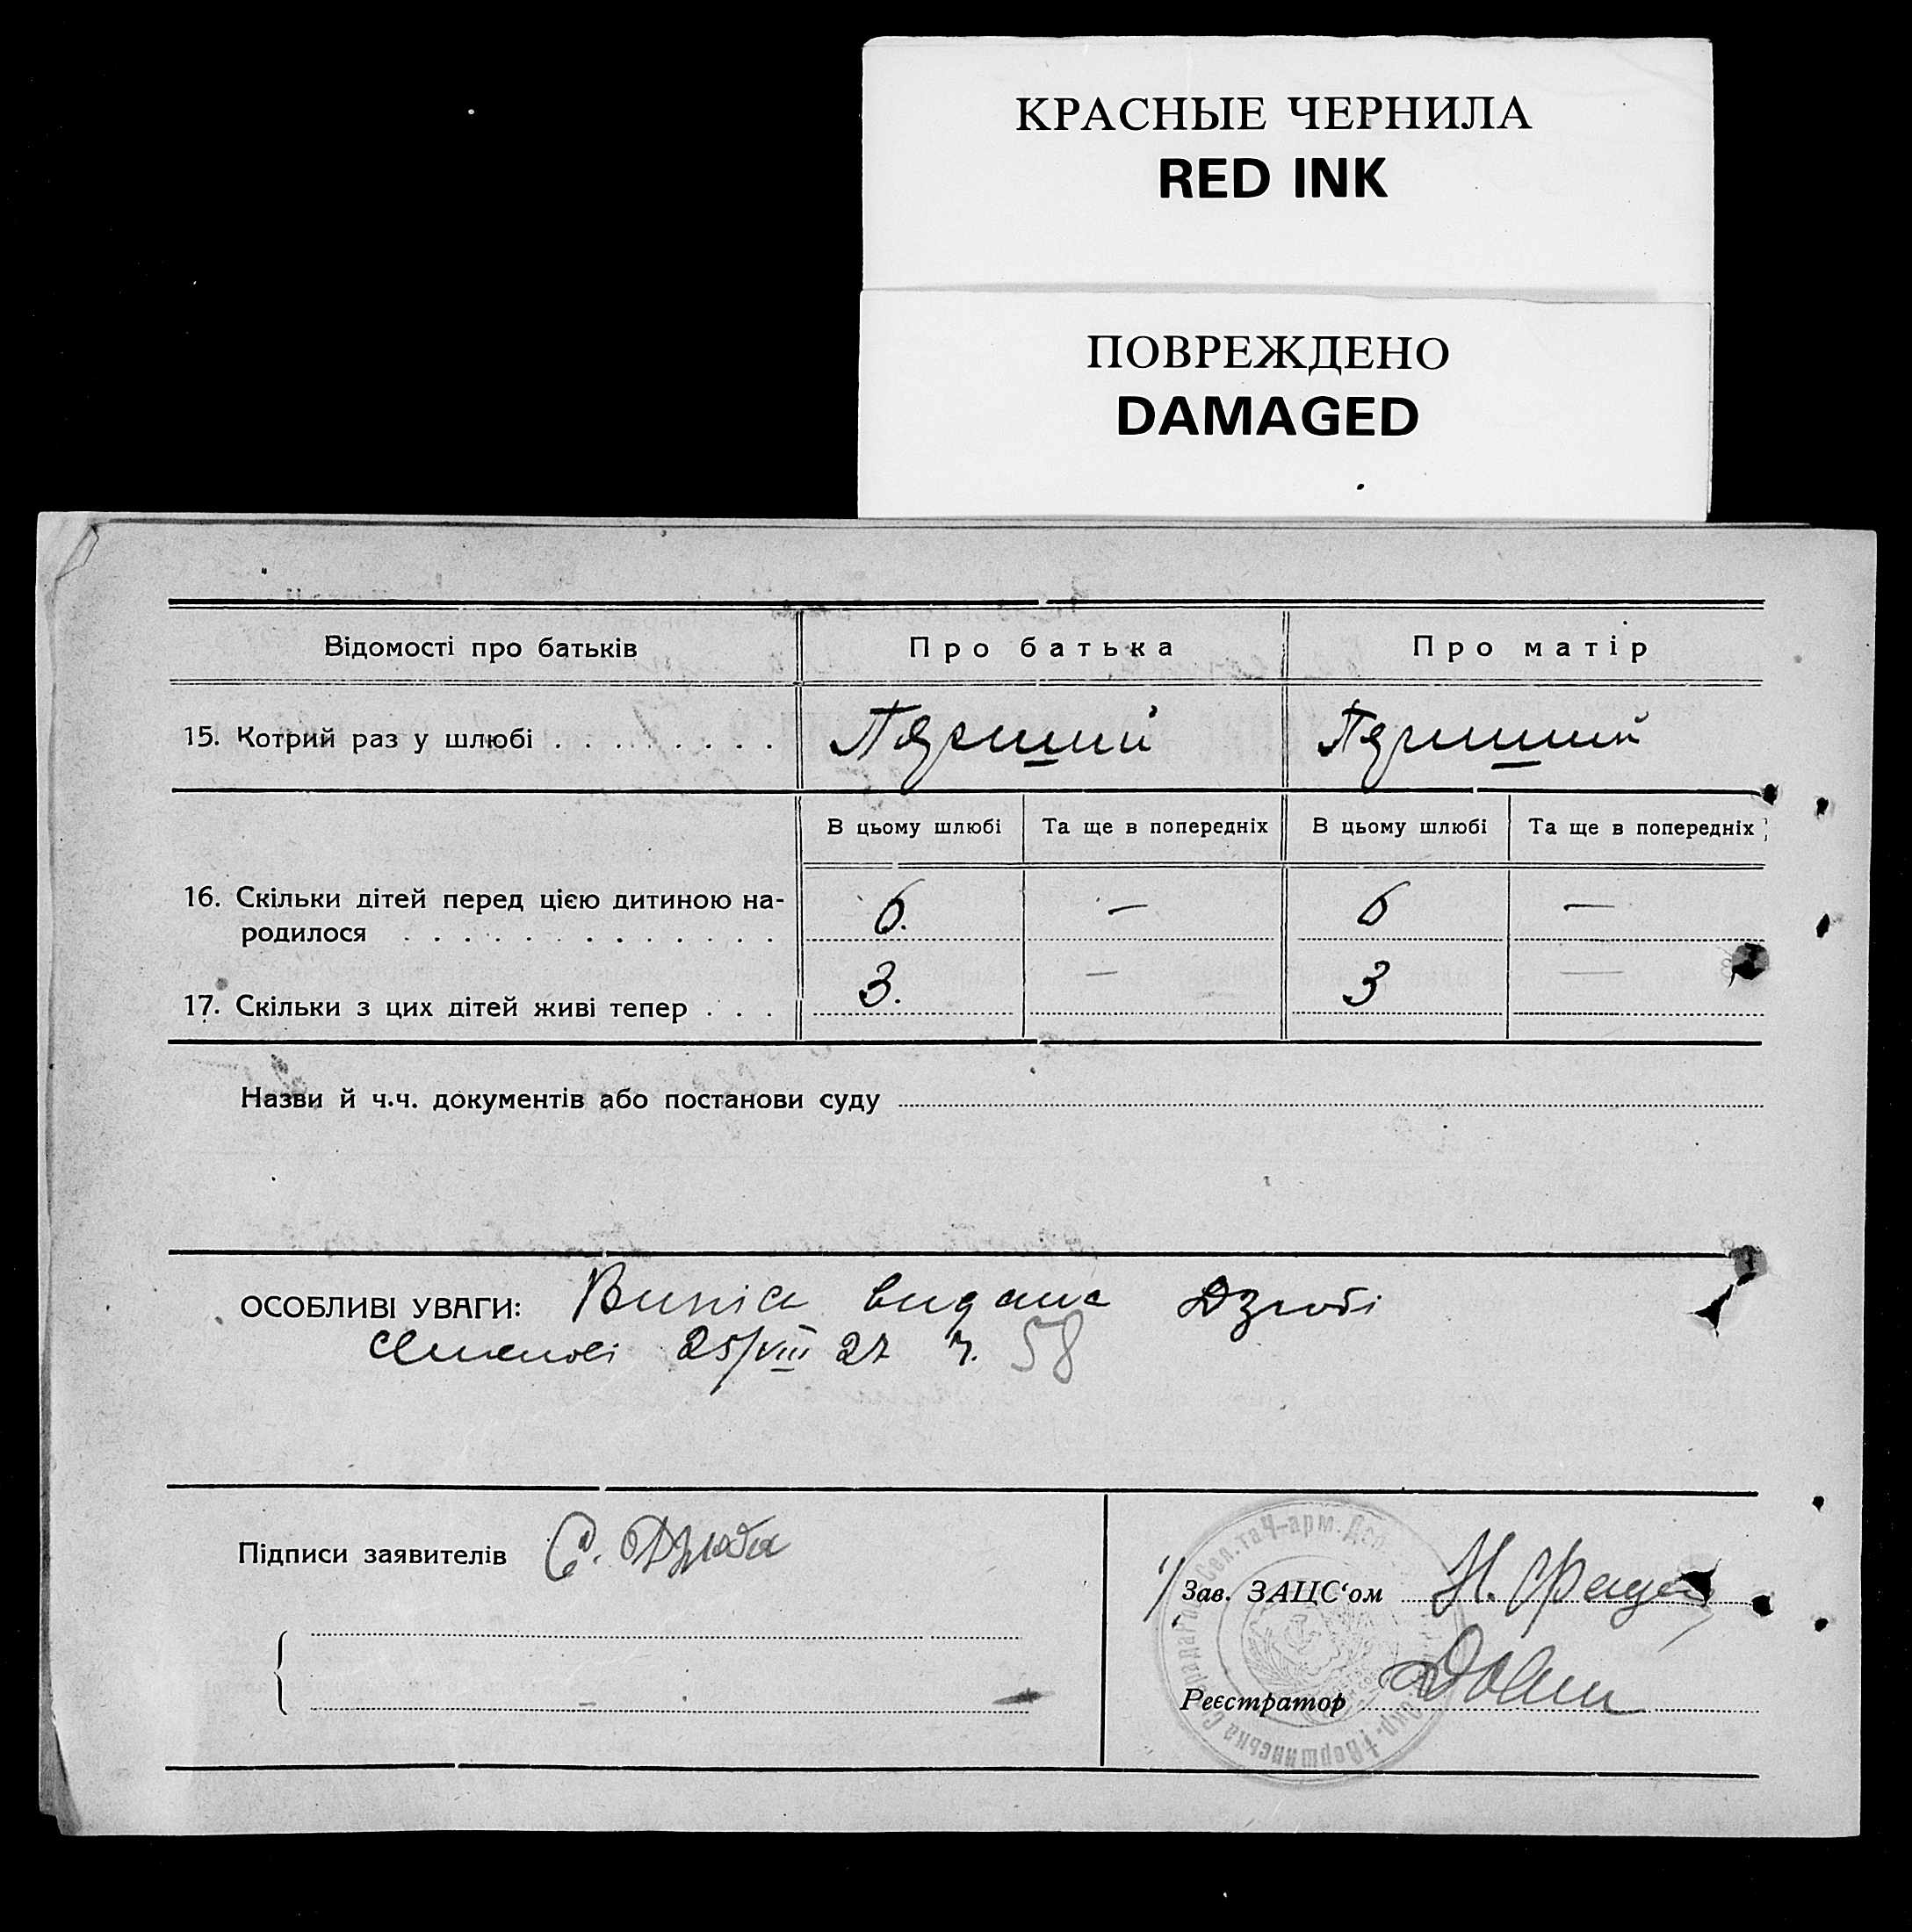 КРАСНЫЕ ЧЕРНИЛА
RED INK
ПОВРЕЖДЕНО
DAMAGED
Відомості про батьків
Про батька
Про матір
15. Котрий раз у шлюбі . . . . . . . . .
Перший
Перший
В цьому шлюбі
Та ще в попередніх
В цьому шлюбі
Та ще в попередніх
16. Скільки дітей перед цією дитиною на-
родилося . . . . . . . . . . . . .
6.
—
6
—
17. Скільки з цих дітей живі тепер . . .
3.
—
3
—
Назви й ч.ч. документів або постанови суду
ОСОБЛИВІ УВАГИ: Випись видана Дзюбі
25/VIII 27 р. 58
Підписи заявителів С. Дзюба
Зав. ЗАЦС‘ом Н.
Реєстратор
Вершинська Сел. та Ч-арм. Деп.